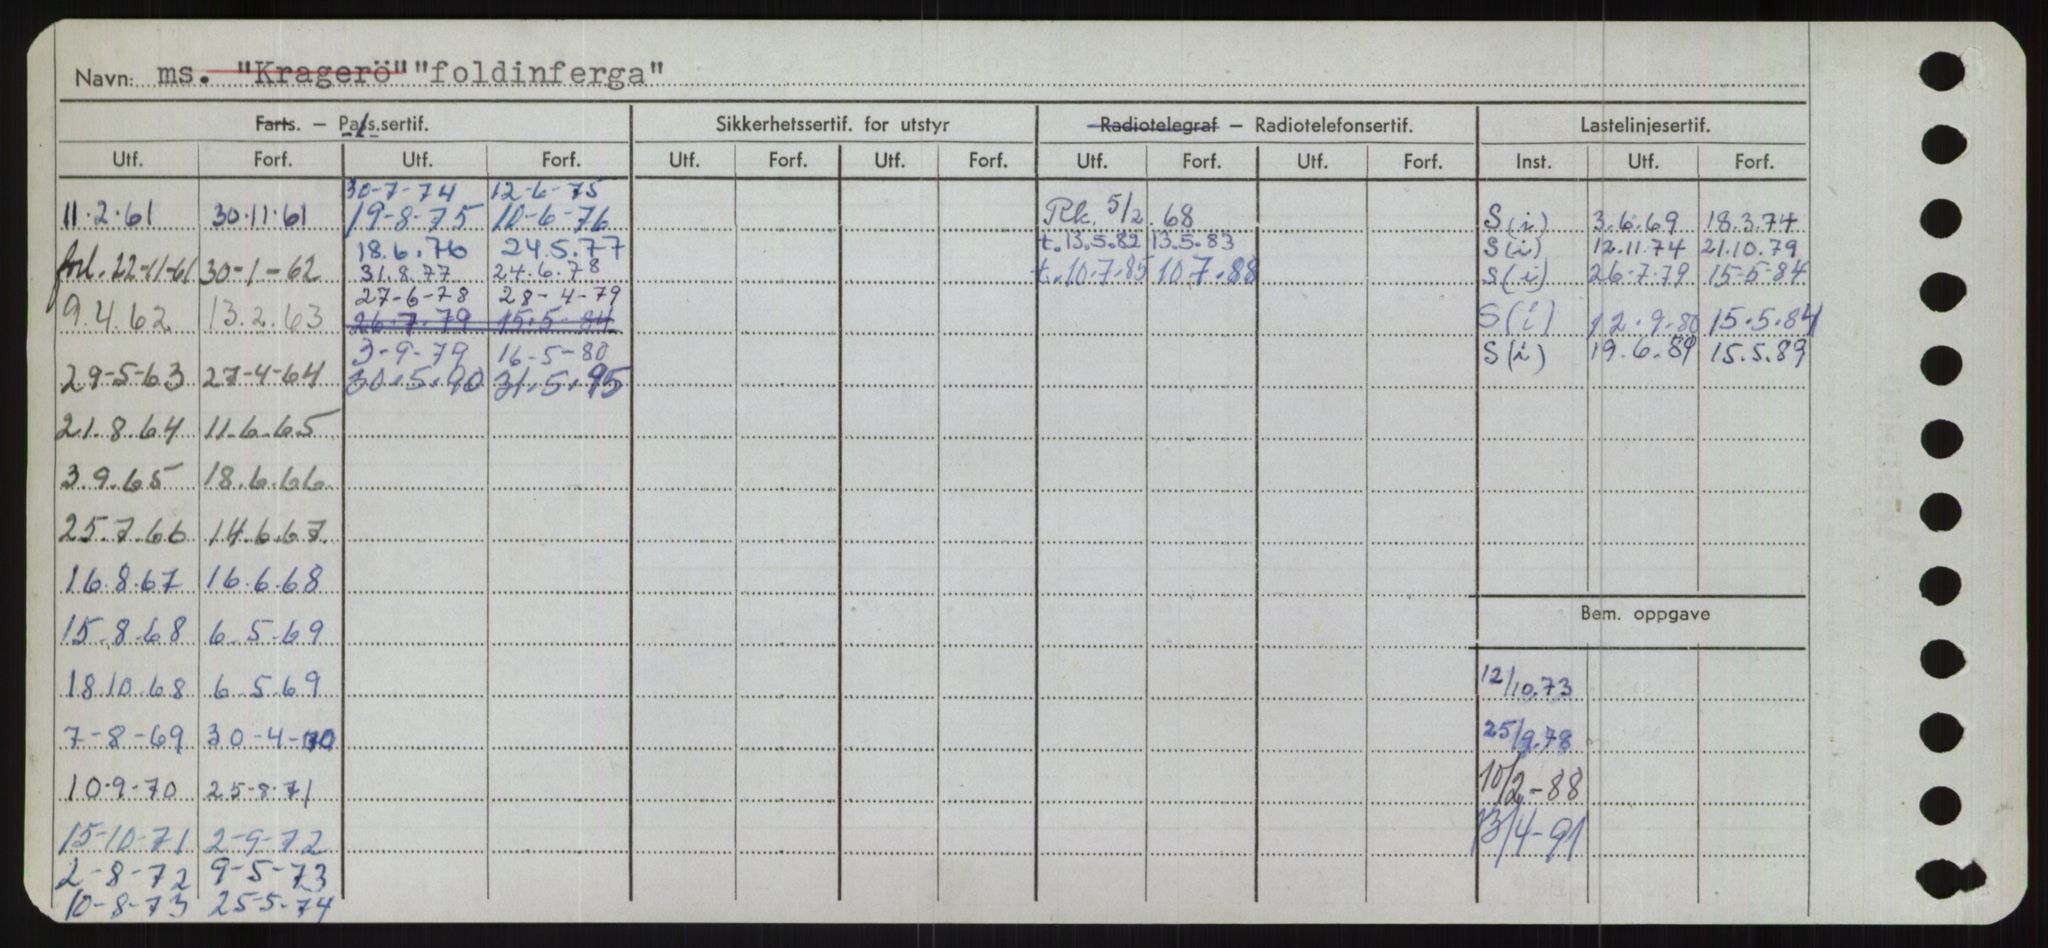 Navn: ms. "Kragerö" "foldinferga"
Farts. – Pass.sertif. Sikkerhetssertif. for utstyr Radiotelegraf – Radiotelefonsertif. Lastelinjesertif.
Utf. Forf. Utf. Forf. Utf. Forf. Utf. Forf. Utf. Forf. Utf. Forf. Inst. Utf. Forf.
30-7-74 12-6-75
11.2.61 30.11.61 19-8-75 10-6-76 Rk. 5/2.68 S(i) 3.6.69 18.3.74
18.6.76 24.5.77 t.13.5.82 13.5.83 S(i) 12.11.74 21.10.79
forl. 22-11-61 30-1-62 31.8.77 24.6.78 t.10.7.85 10.7.88 S(i) 26-7-79 15-5-84
27-6-78 28-4-79
9.4.62 13.2.63 26.7.79 15.5.84 S(i) 12.9.80 15.5.84
3-9-79 16-5-80 S(i) 19.6.89 15.5.89
29-5-63 27-4-64 30.5.90 31.5.95
21.8.64 11.6.65
3.9.65 18.6.66
25.7.66 14.6.67
16.8.67 16.6.68
Bem. oppgave
15.8.68 6.5.69
18.10.68 6.5.69 12/10.73
7-8-69 30-4-70 25/9.78
10-9-70 25-8-71 10/2-88
15-10-71 2-9-72 13/4-91
2-8-72 9-5-73
10-8-73 25-5-74